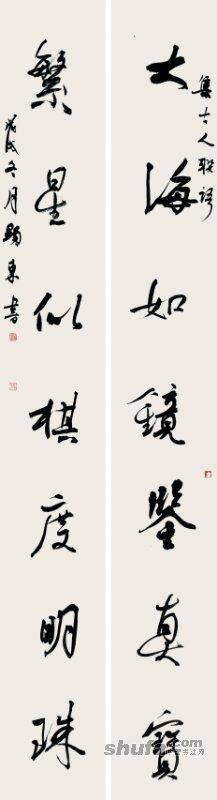 集古人聯語
大海如鏡鑒真寶
繁星似棋度明珠
戊戌冬月 東書